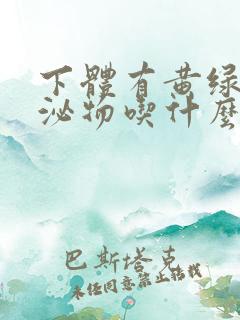 下體有黄绿
泌物喫什麽
巴斯塔克
未经同意禁止转载